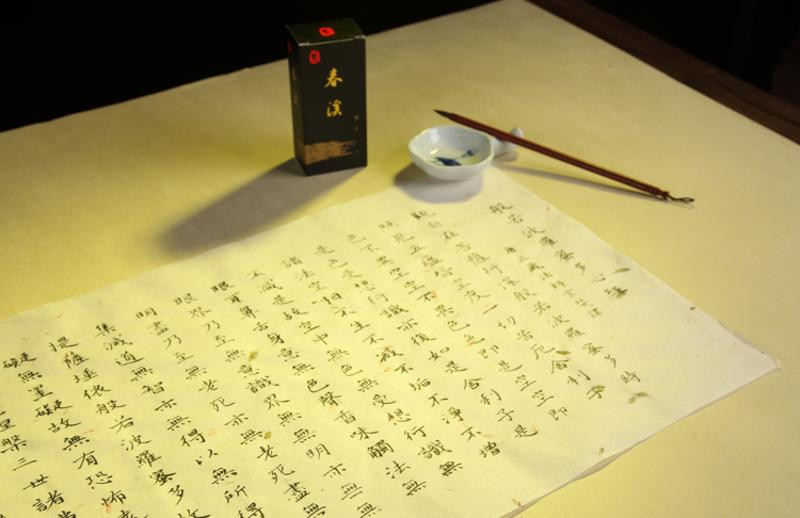 春溪
般若波羅蜜多心經
觀自在菩薩行深般若波羅蜜多時
照見五蘊皆空度一切苦厄舍利子
色不異空空不異色色即是空空即
是色受想行識亦復如是舍利子是
諸法空相不生不滅不垢不淨不增
不減是故空中無色無受想行識無
眼耳鼻舌身意無色聲香味觸法無
眼界乃至無意識界無無明亦無無
明盡乃至無老死亦無老死盡無
集滅道無智亦無得以無所得
提薩埵依般若波羅蜜多故
礙無罣礙故無有恐怖
槃三世諸